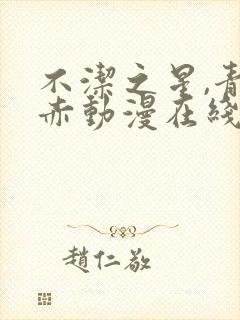 不潔之星,青
赤動漫在綫
趙仁敬